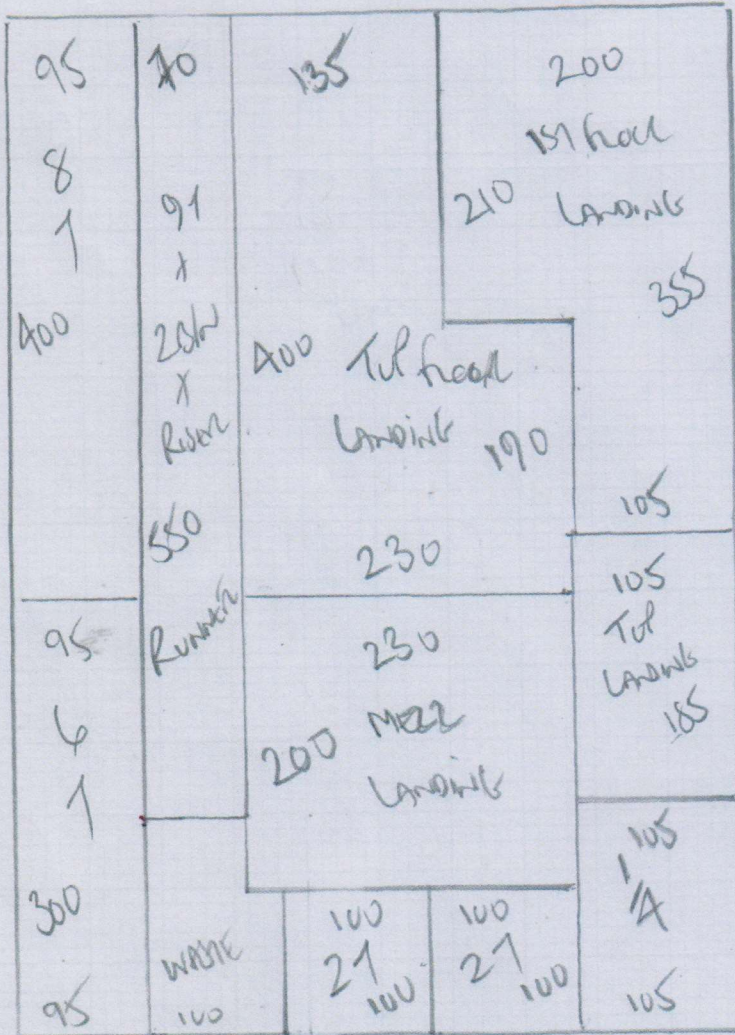 95
8
1
400
95
6
1
300
95
70
91
x
x
RISER
550
RUNNER
WASTE
100
135
400
TOP FLOOR
LANDING
190
230
230
200
MEZZ
LANDING
100
27
100
100
27
100
200
1ST FLOOR
210
LANDING
355
105
105
TOP
LANDING
185
105
105